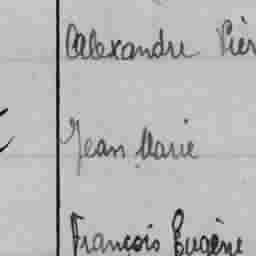 Alexandre Pier
Jean Marie
François Eugène